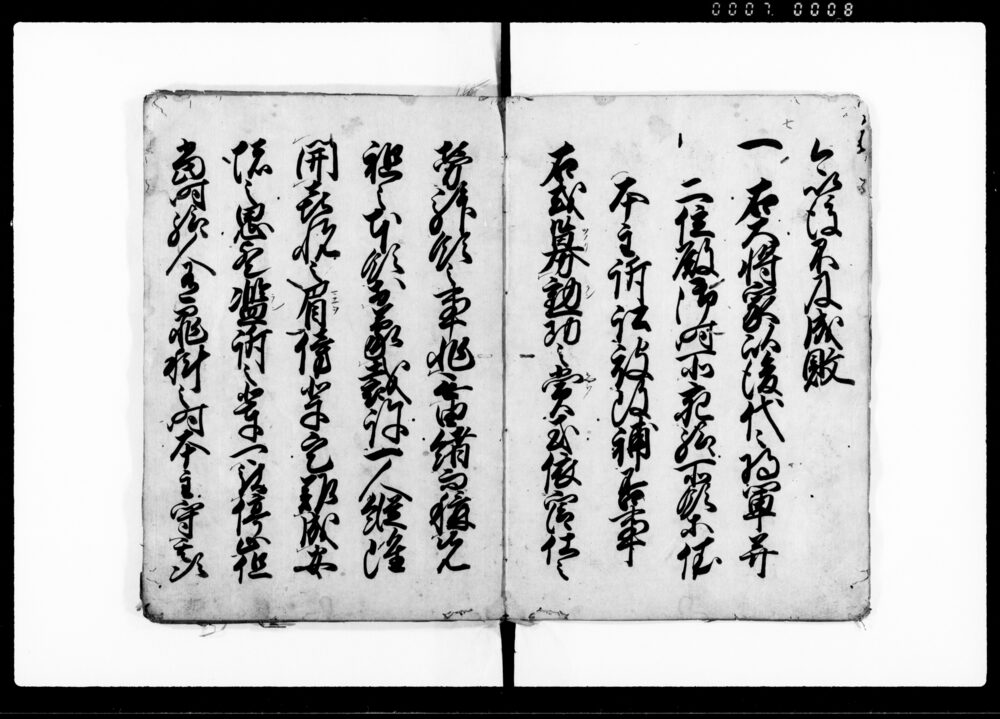 0007 0008
七
今以後不及成敗
一 右大将家以後代々将軍并
二位殿御時所充給所領等依
本主訴訟被改補否事
右或募勲功之賞或依宮仕之
労拝領之事非無由緒而称先
祖之本領於蒙裁許一人縦雖
開喜悦之眉傍輩定難成安
堵之思歟濫訴之輩可被停止但
当時給人有罪科之時本主守其次